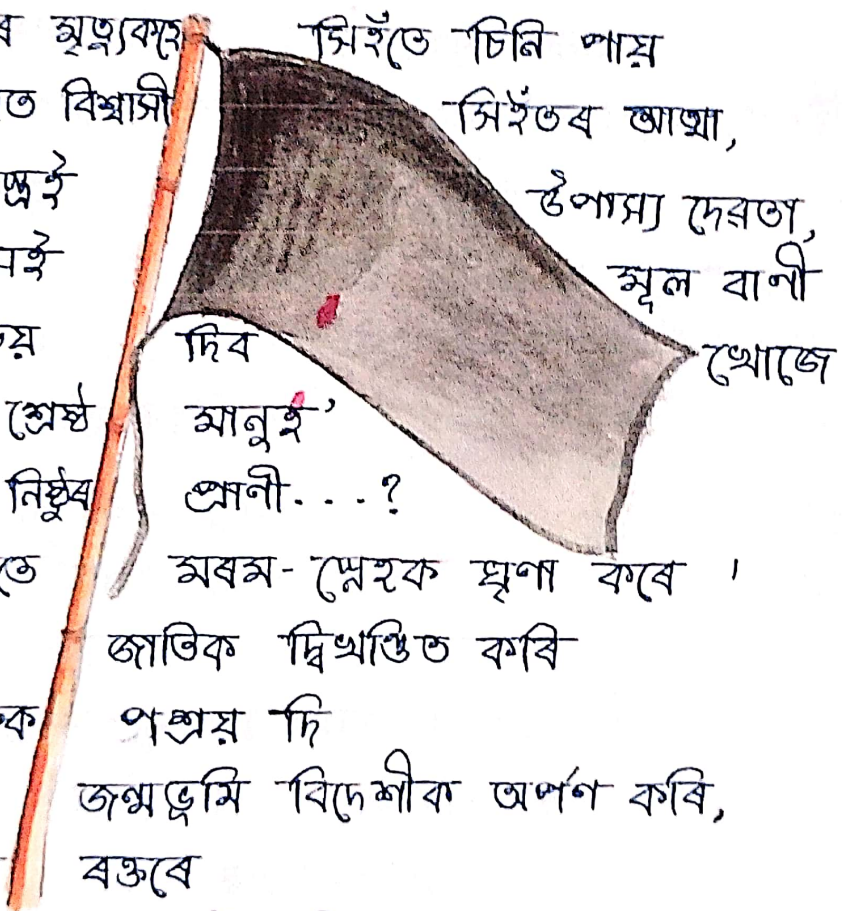 মৃত্যুকহে সিহঁতে চিনি পায়
ত বিশ্বাসী সিহঁতৰ আত্মা,
উপাস্য দেৱতা,
মূল বাণী
দিব খোজে
শ্ৰেষ্ঠ মানুহ'
নিষ্ঠুৰ প্ৰাণী...?
মৰম-স্নেহক ঘৃণা কৰে ।
জাতিক দ্বিখণ্ডিত কৰি
পশ্ৰয় দি
জন্মভূমি বিদেশীক অৰ্পণ কৰি,
ৰক্তৰে